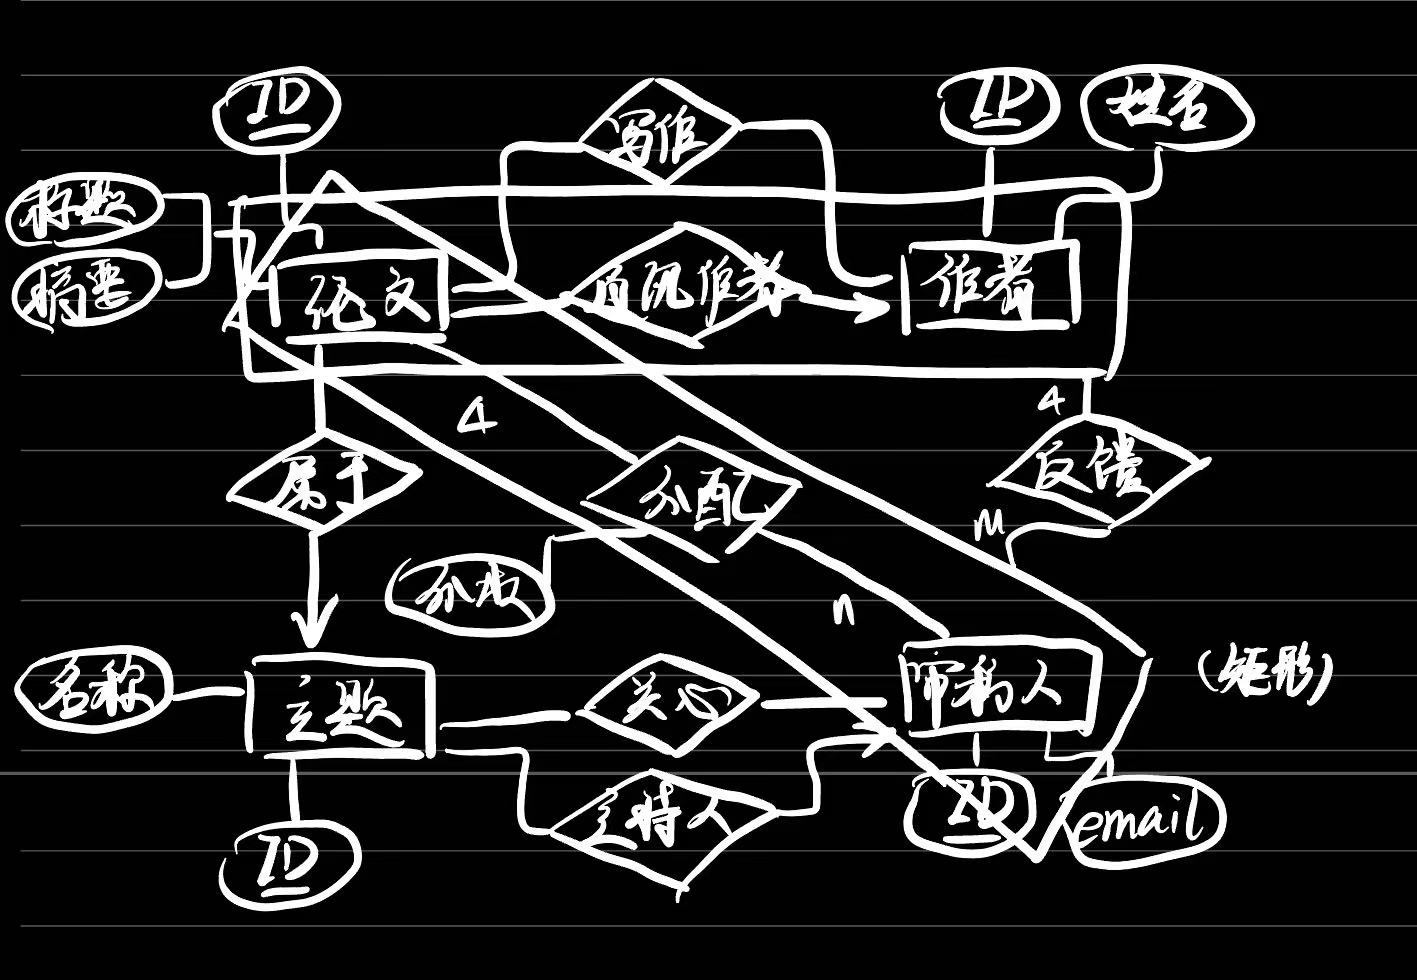 ID
写作
ID
姓名
标题
摘要
论文
通讯作者
作者
4
4
属于
分配
反馈
m
分数
n
名称
主题
关心
审稿人
(矩形)
主持人
ID
ID
email